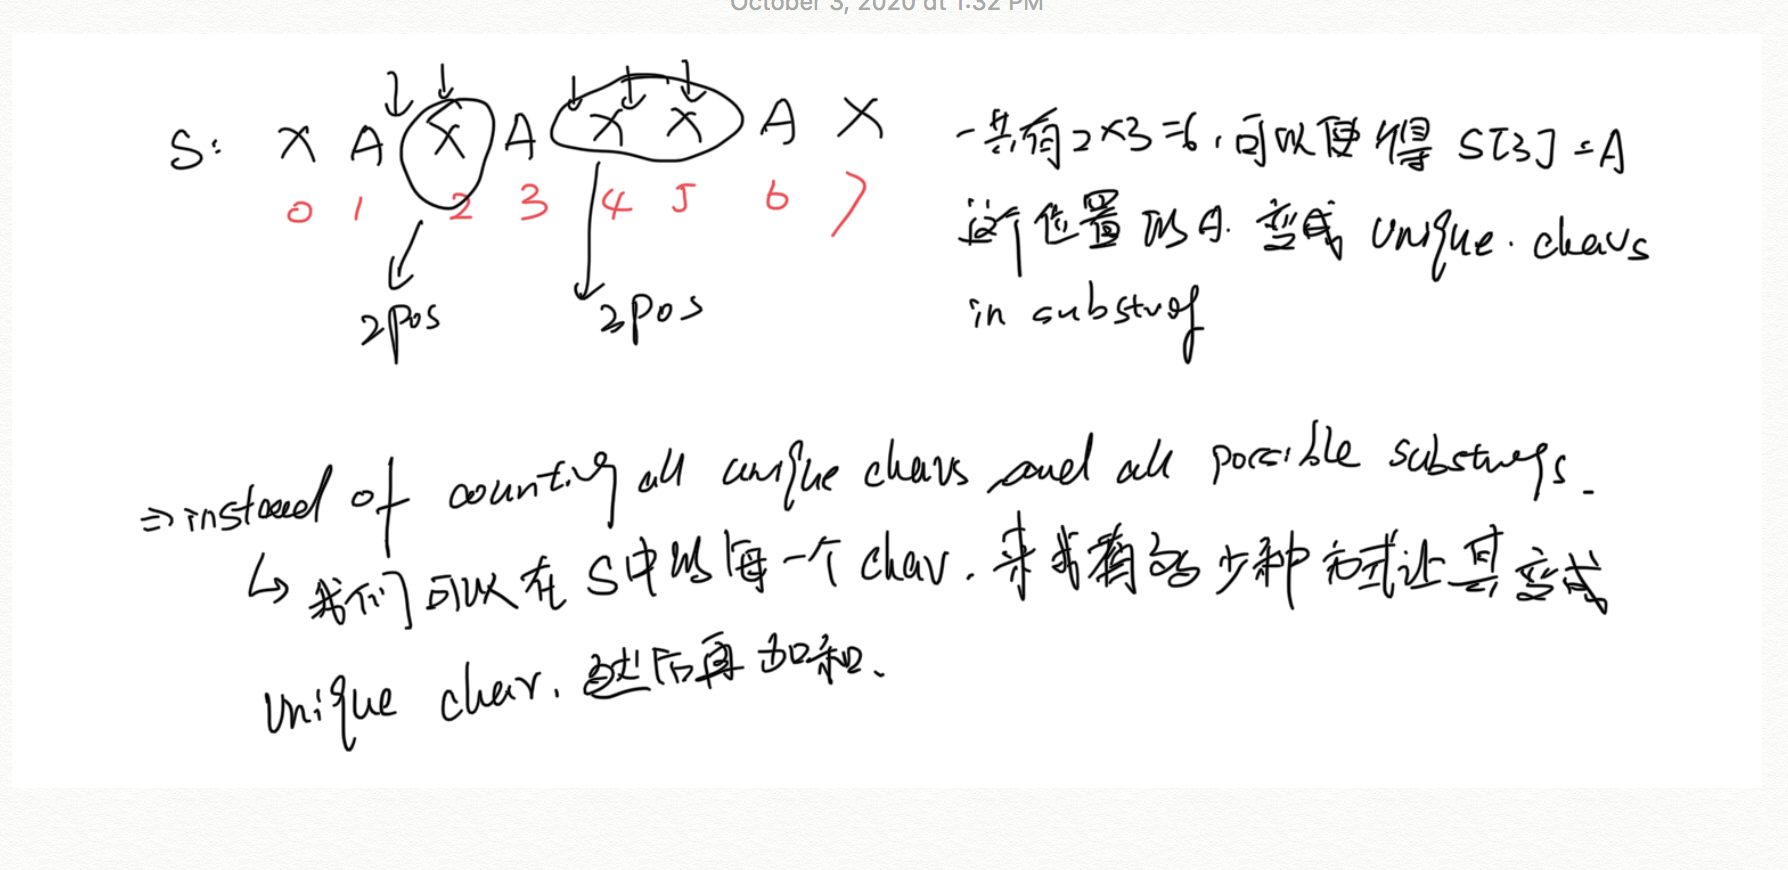 October 3, 2020 at 1:32 PM
S: X A X A X X A X
0 1 2 3 4 5 6 7
2pos 3pos
一共有2×3=6,可以使得 S[3]=A
这个位置的A.变成 unique. chars
in substring
⇒ instead of counting all unique chars and all possible substrings.
↳ 我们可以在S中的每一个char.来找有多少种方式让其变成
unique char.然后再加和.